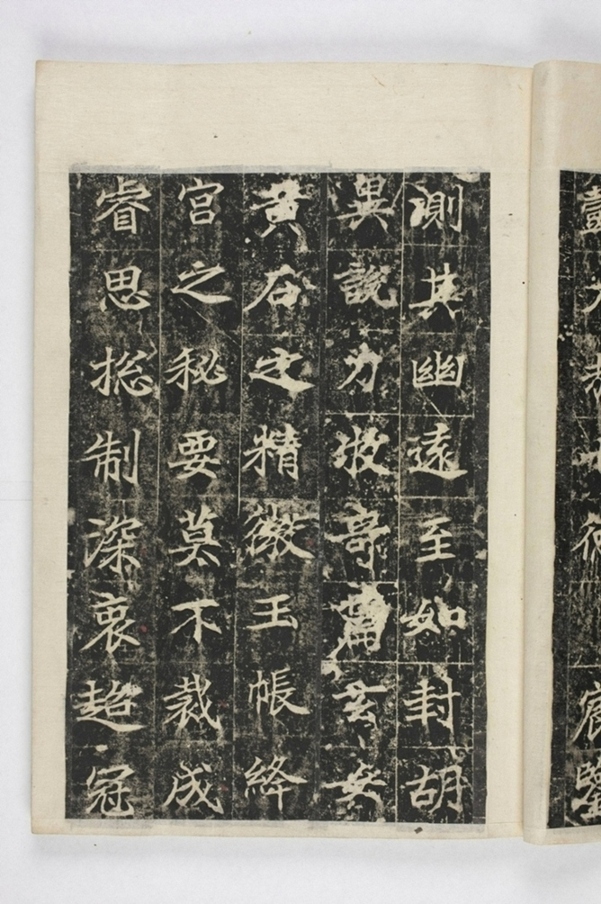 測其幽遠至如封胡
異說力牧奇篇玄女
黃石之精微玉帳絳
宮之秘要莫不裁成
睿思揔制深衷超冠